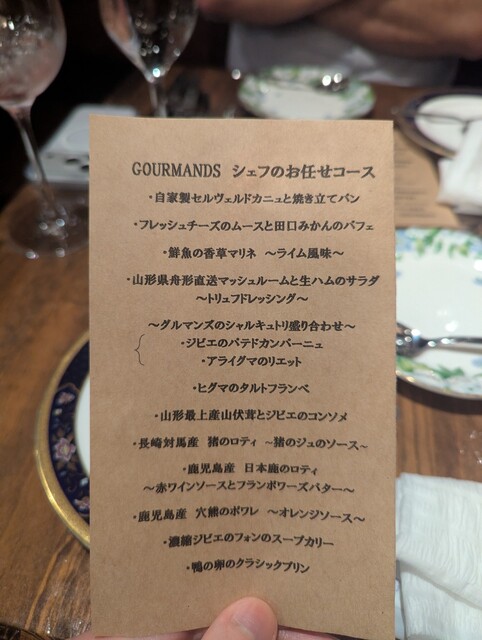 GOURMANDS シェフのお任せコース
・自家製セルヴェルドカニュと焼き立てパン
・フレッシュチーズのムースと田口みかんのパフェ
・鮮魚の香草マリネ ～ライム風味～
・山形県舟形直送マッシュルームと生ハムのサラダ
～トリュフドレッシング～
～グルマンズのシャルキュトリ盛り合わせ～
・ジビエのパテドカンパーニュ
・アライグマのリエット
・ヒグマのタルトフランベ
・山形最上産山伏茸とジビエのコンソメ
・長崎対馬産 猪のロティ ～猪のジュのソース～
・鹿児島産 日本鹿のロティ
～赤ワインソースとフランボワーズバター～
・鹿児島産 穴熊のポワレ ～オレンジソース～
・濃縮ジビエのフォンのスープカリー
・鴨の卵のクラシックプリン